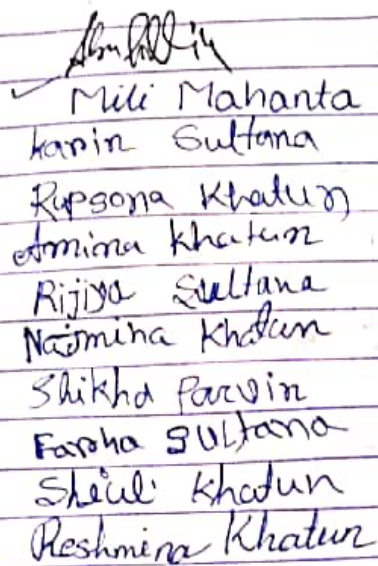 Mili Mahanta
Karin Sultana
Rupsona Khatun
Amina Khatun
Rijiya Sultana
Najmina Khatun
Shikha Parvin
Farha Sultana
Sheuli Khatun
Reshmina Khatun